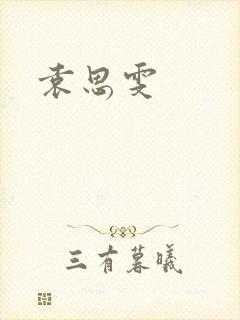 袁思雯
三有暮曦